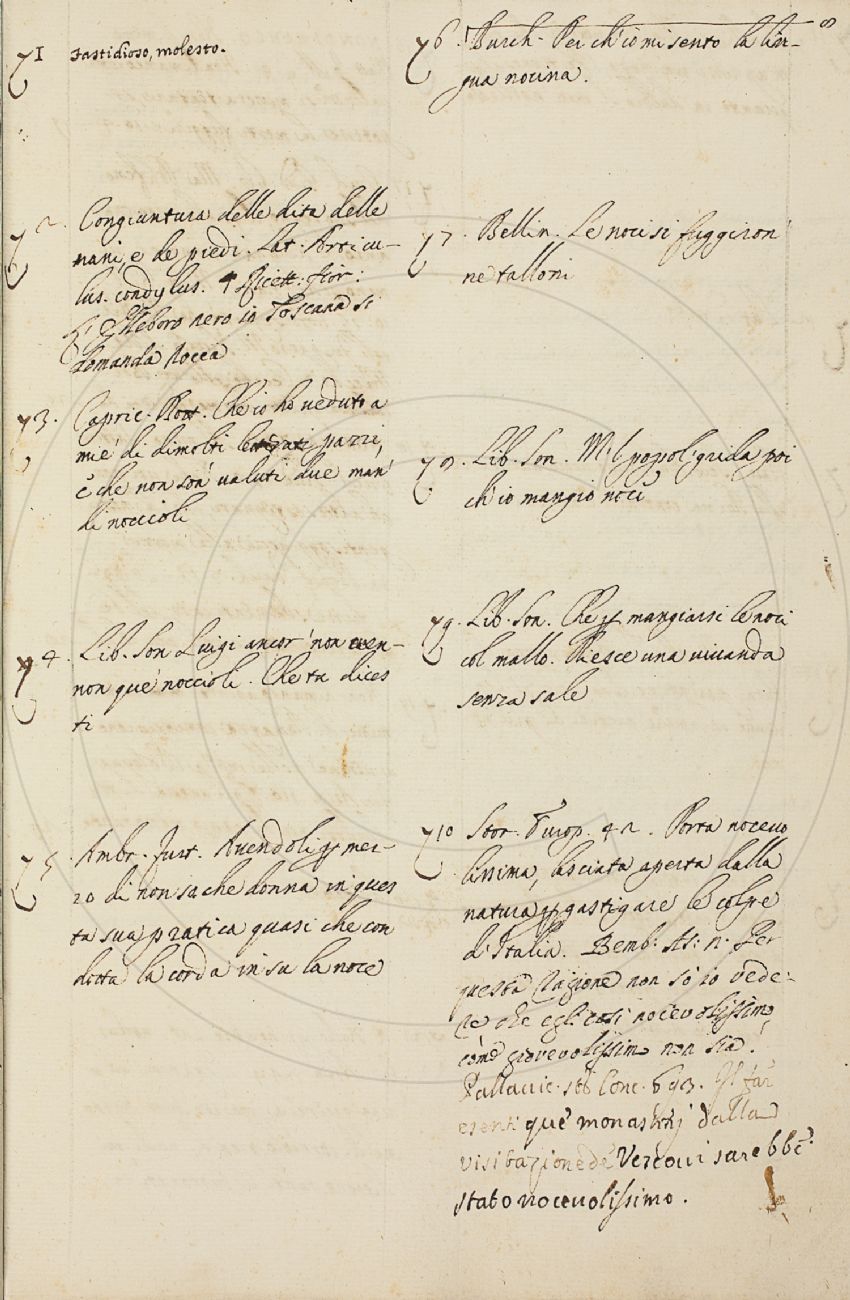 71 Fastidioso, molesto.
72. Congiuntura delle dita delle
mani, e de piedi. Lat. Articu-
lus. condylus. ⁋ Ricett. fior:
L' Elleboro nero in Toscana si
domanda Nocca
73. Capric. Bott. Che io hò veduto a
mie' dì dimolti letterati pazzi,
e che non son' valuti due man'
di noccioli
74. Lib. Son Luigi ancor' non
non que' noccioli. Che tu dices
ti
75. Ambr. Furt. Avendoli per mez-
zo di non sa che donna in ques
ta sua pratica quasi che con
dotta la corda in su la noce
8
76. Burch. Per ch'io mi sento la lin-
gua nocina.
77. Bellin. Le noci si fuggiron'
ne talloni
78. Lib. Son. M. il popol' grida poi
ch'io mangio noci
79. Lib. Son. Che per mangiarsi le noci
col mallo. Riesce una vivanda
senza sale
710 Stor. Europ. 42. Porta nocevo
lissima, lasciata aperta dalla
natura per gastigare le colpe
d'Italia. Bemb. As: n. Per
questa ragione non sò io vede-
re che egli così nocevolissimo,
come giovevolissimo non sia.
Pallavic. sto Conc. 693. Il far
esenti que' monasterj dalla
visitazione de' Vescovi sarebbe
stato nocevolissimo.